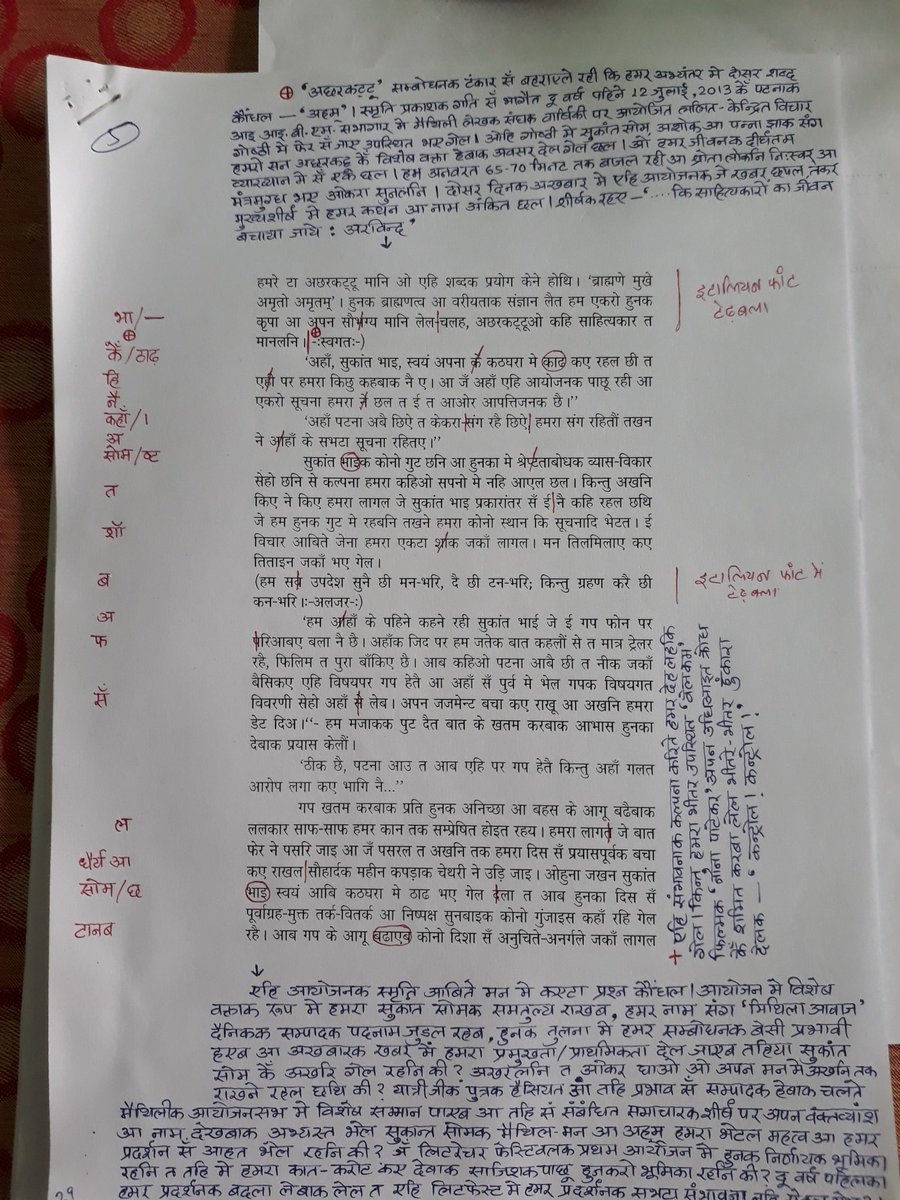 5
⊕ 'अछरकट्टू' सम्बोधनक टंकार सँ बहराएले रही कि हमर अभ्यंतर मे दोसर शब्द
कौंधल — 'अहम्'। स्मृति प्रकाशक गति सँ भागैत दू वर्ष पहिने 12 जुलाई, 2013 कें पटनाक
आइ. आइ. बी. एम. सभागार मे मैथिली लेखक संघक वार्षिकी पर आयोजित ललित-केन्द्रित विचार
गोष्ठी मे फेर सँ गए उपस्थित भए गेल। ओहि गोष्ठी मे सुकांत सोम, अशोक आ पन्ना झाक संग
हमरो सन अछरकट्टू कें विशेष वक्ता हेबाक अवसर देल गेल छल। ओ हमर जीवनक दीर्घतम
व्याख्यान मे सँ एक छल। हम अनवरत 65-70 मिनट तक बाजल रही आ श्रोता लोकनि निःस्वर आ
मंत्रमुग्ध भए ओकरा सुनलनि। दोसर दिनक अखबार मे एहि आयोजनक जे खबर छपल, तकर
मुख्यशीर्ष मे हमर कथन आ नाम अंकित छल। शीर्षक रहए – '....कि साहित्यकारों का जीवन
बचाया जाये : अरविन्द'
↓
हमरे टा अछरकट्टू मानि ओ एहि शब्दक प्रयोग केने होथि। 'ब्राह्मणे मुखे
अमृतो अमृतम्'। हुनक ब्राह्मणत्व आ वरीयताक संज्ञान लैत हम एकरो हुनक
कृपा आ अपन सौभग्य मानि लेल चलह, अछरकट्टूओ कहि साहित्यकार त
मानलनि। -:स्वगतः-)
'अहाँ, सुकांत भाइ, स्वयं अपना के कठघरा मे काढ कए रहल छी त
एही पर हमरा किछु कहबाक नै ए। आ जँ अहाँ एहि आयोजनक पाछू रही आ
एकरो सूचना हमरा ने छल त ई त आओर आपत्तिजनक है।"
'अहाँ पटना अबै छिऐ त केकरा संग रहै छिऐ हमरा संग रहितौं तखन
ने आहाँ के सभटा सूचना रहितए।"
सुकांत भाइक कोनो गुट छनि आ हुनका मे श्रेष्टताबोधक व्यास-विकार
सेहो छनि से कल्पना हमरा कहिओ सपनो मे नहि आएल छल। किन्तु अखनि
किए ने किए हमरा लागल जे सुकांत भाइ प्रकारांतर सँ ई नै कहि रहल छथि
जे हम हुनक गुट मे रहबनि तखने हमरा कोनो स्थान कि सूचनादि भेटत। ई
विचार आबिते जेना हमरा एकटा शाक जकाँ लागल। मन तिलमिलाए कए
तिताइन जकाँ भए गेल।
(हम सब उपदेश सुनै छी मन-भरि, दै छी टन-भरि; किन्तु ग्रहण करै छी
कन-भरि।:-अलजर-:)
'हम आहाँ के पहिने कहने रही सुकांत भाई जे ई गप फोन पर
परिआबए बला नै है। अहाँक जिद पर हम जतेक बात कहलौं से त मात्र ट्रेलर
रहै, फिलिम त पुरा बाँकिए है। आब कहिओ पटना आबै छी त नीक जकाँ
बैसिकए एहि विषयपर गप हेतै आ अहाँ सँ पुर्व मे भेल गपक विषयगत
विवरणी सेहो अहाँ से लेब। अपन जजमेन्ट बचा कए राखू आ अखनि हमरा
डेट दिअ।"- हम मजाकक पुट दैत बात के खतम करबाक आभास हुनका
देबाक प्रयास केलौं।
'ठीक छै, पटना आउ त आब एहि पर गप हेतै किन्तु अहाँ गलत
आरोप लगा कए भागि नै..."
गप खतम करबाक प्रति हुनक अनिच्छा आ बहस के आगू बढैबाक
ललकार साफ-साफ हमर कान तक सम्प्रेषित होइत रहय। हमरा लागत जे बात
फेर ने पसरि जाइ आ जँ पसरल त अखनि तक हमरा दिस सँ प्रयासपूर्वक बचा
कए राखल सौहार्दक महीन कपड़ाक चेथरी ने उड़ि जाइ। ओहुना जखन सुकांत
भाई स्वयं आबि कठघरा मे ठाढ भए गेल दला त आब हुनका दिस सँ
पूर्वाग्रह-मुक्त तर्क-वितर्क आ निष्पक्ष सुनबाइक कोनो गुंजाइस कहाँ रहि गेल
रहै। आब गप के आगू बढाएब कोनो दिशा सँ अनुचिते-अनर्गले जकाँ लागल
भा/—
⊕
कें/ठाढ़
हि
नै
कहाँ/।
अ
सोम/ष्ट
त
शॉ
ब
अ
फ
सँ
ल
धैर्य आ
सोम/छ
टानब
इटालियन फॉट
टेढ़बला
इटालियन फॉट में
टेढ़बला
+ एहि संभावनाक कल्पना करिते हमर देह लहकि
गेल। किन्तु हमरा भीतर उपस्थित 'वेलकम'
फिल्मक 'नाना पाटेकर' अपन अधिआइत क्रोध
कें शमित करबा लेल भीतरे-भीतर हुंकारा
देलक — 'कन्ट्रोल! कन्ट्रोल!'
↓
एहि आयोजनक स्मृति आबिते मन मे कएटा प्रश्न कौंधल। आयोजन मे विशेष
वक्ताक रूप मे हमरा सुकांत सोमक समतुल्य राखब, हमर नाम संग 'मिथिला आवाज'
दैनिकक सम्पादक पदनाम जुड़ल रहब, हुनक तुलना मे हमर सम्बोधनक बेसी प्रभावी
हएब आ अखबारक खबर में हमरा प्रमुखता/प्राथमिकता देल जाएब तहिया सुकांत
सोम कें अखरि गेल रहनि की? अखरलनि त ओकर घाओ ओ अपन मन मे अखनि तक
राखने रहल छथि की? यात्रीजीक पुत्रक हैसियत आ तहि प्रभाव सँ सम्पादक हेबाक चलते
मैथिलीक आयोजनसभ मे विशेष सम्मान पाएब आ तहि सँ संबंधित समाचारक शीर्ष पर अपन वक्तव्यांश
आ नाम देखबाक अभ्यस्त भेल सुकान्त सोमक मैथिल-मन आ अहम् हमरा भेटल महत्व आ हमर
प्रदर्शन सँ आहत भेल रहनि की? जँ लिटरेचर फेस्टिवलक प्रथम आयोजन मे हुनक निर्णायक भूमिका
रहनि त तहि मे हमरा कात-करोट कए देबाक साजिशक पाछू हुनकरो भूमिका रहनि की? दू वर्ष पहिलका
हमर प्रदर्शनक बदला लेबाक लेल त एहि लिटफेस्ट मे हमर प्रदर्शनक सभटा संभावना